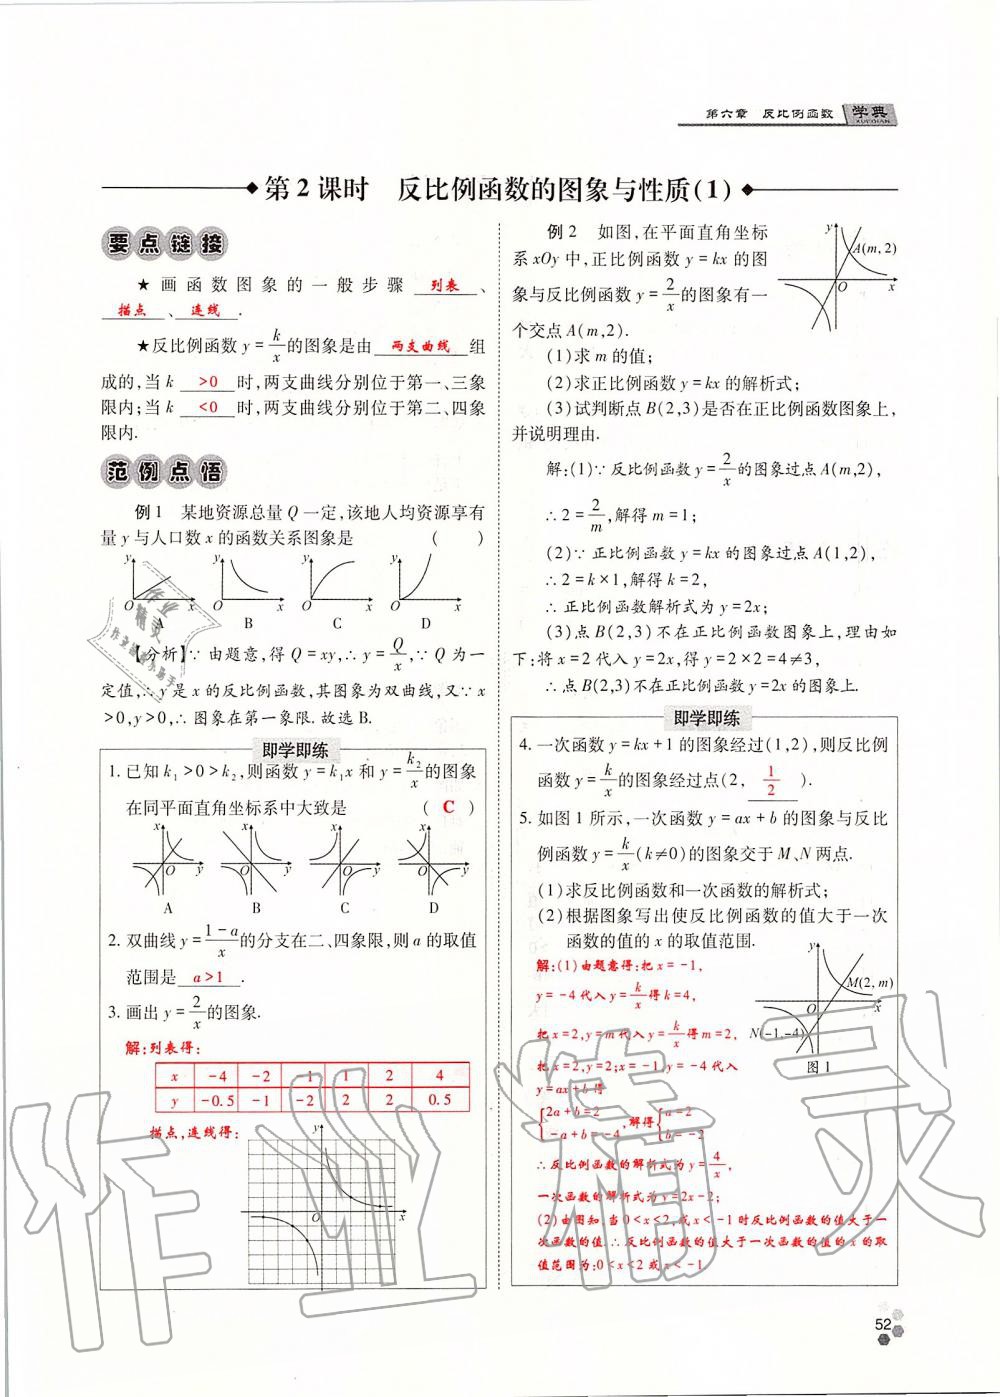 第六章 反比例函数 学典
XUEDIAN
第2课时 反比例函数的图象与性质(1)
要点链接
★画函数图象的一般步骤 列表 、
描点 、 连线 .
★反比例函数 y=k/x 的图象是由 两支曲线 组
成的,当 k >0 时,两支曲线分别位于第一、三象
限内;当 k <0 时,两支曲线分别位于第二、四象
限内.
范例点悟
例1 某地资源总量 Q 一定,该地人均资源享有
量 y 与人口数 x 的函数关系图象是 ( )
y y y y
O x O x O x O x
A B C D
【分析】∵由题意,得 Q=xy,∴y=Q/x,∵Q 为一
定值,∴y 是 x 的反比例函数,其图象为双曲线,又∵x
>0,y>0,∴图象在第一象限.故选B.
即学即练
1. 已知 k₁>0>k₂,则函数 y=k₁x 和 y=k₂/x 的图象
在同平面直角坐标系中大致是 ( C )
x y x y x y x y
A B C D
2. 双曲线 y=(1-a)/x 的分支在二、四象限,则 a 的取值
范围是 a>1 .
3. 画出 y=2/x 的图象.
解:列表得:
x -4 -2 -1 1 2 4
y -0.5 -1 -2 2 2 0.5
描点,连线得:
y
O x
例2 如图,在平面直角坐标
系 xOy 中,正比例函数 y=kx 的图
象与反比例函数 y=2/x 的图象有一
个交点 A(m,2).
y A(m,2)
O x
(1)求 m 的值;
(2)求正比例函数 y=kx 的解析式;
(3)试判断点 B(2,3)是否在正比例函数图象上,
并说明理由.
解:(1)∵反比例函数 y=2/x 的图象过点 A(m,2),
∴2=2/m,解得 m=1;
(2)∵正比例函数 y=kx 的图象过点 A(1,2),
∴2=k×1,解得 k=2,
∴正比例函数解析式为 y=2x;
(3)点 B(2,3)不在正比例函数图象上,理由如
下:将 x=2 代入 y=2x,得 y=2×2=4≠3,
∴点 B(2,3)不在正比例函数 y=2x 的图象上.
即学即练
4. 一次函数 y=kx+1 的图象经过(1,2),则反比例
函数 y=k/x 的图象经过点(2, 1/2 ).
5. 如图1所示,一次函数 y=ax+b 的图象与反比
例函数 y=k/x(k≠0)的图象交于 M、N 两点.
(1)求反比例函数和一次函数的解析式;
(2)根据图象写出使反比例函数的值大于一次
函数的值的 x 的取值范围.
解:(1)由题意得:把 x=-1,
y=-4 代入 y=k/x 得 k=4,
把 x=2,y=m 代入 y=k/x 得 m=2,
把 x=2,y=2;x=-1,y=-4 代入
y=ax+b 得
{2a+b=2 -a+b=-4,解得{a=2 b=-2
∴反比例函数的解析式为 y=4/x,
一次函数的解析式为 y=2x-2;
(2)由图知,当 0<x<2,或 x<-1 时反比例函数的值大于一
次函数的值.∴反比例函数的值大于一次函数的值的 x 的取
值范围为:0<x<2 或 x<-1
y
M(2,m)
O x
N(-1,-4)
图1
作业精灵
52